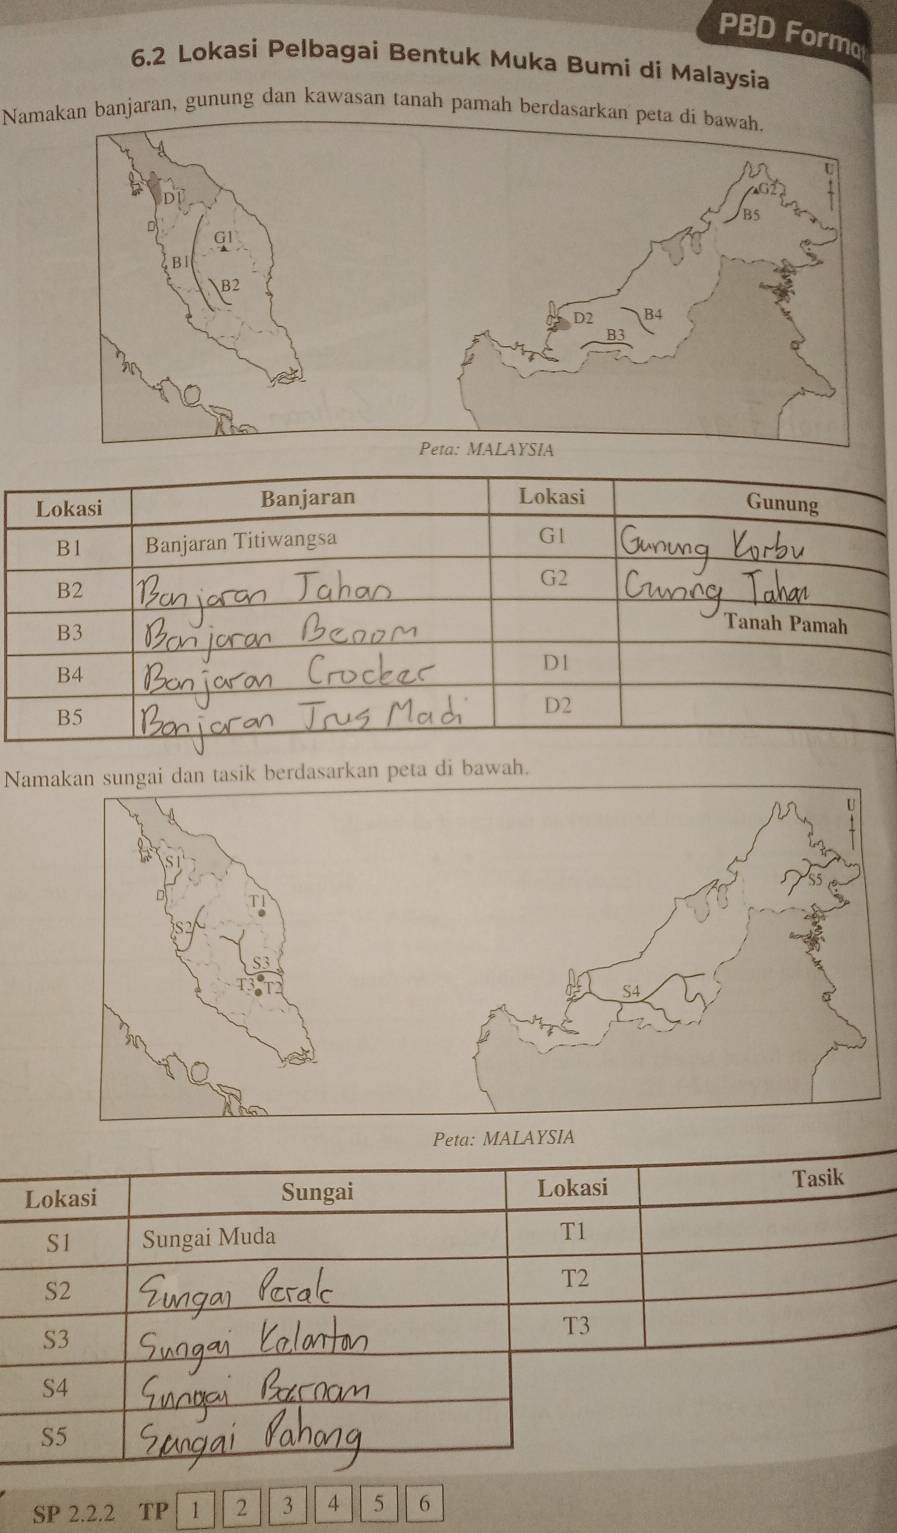 PBD Format
6.2 Lokasi Pelbagai Bentuk Muka Bumi di Malaysia
Namakan banjaran, gunung dan kawasan tanah pamah berdasarkan peta di bawah.
U
D1
G1
B1
B2
G2
B5
D2
B4
B3
Peta: MALAYSIA
Lokasi Banjaran Lokasi Gunung
B1 Banjaran Titiwangsa G1 Gunung Korbu
B2 Banjaran Tahan G2 Gunung Tahan
B3 Banjaran Benom Tanah Pamah
B4 Banjaran Crocker D1
B5 Banjaran Trus Madi D2
Namakan sungai dan tasik berdasarkan peta di bawah.
U
S1
T1
S2
S3
T3 T2
S5
S4
Peta: MALAYSIA
Lokasi Sungai Lokasi Tasik
S1 Sungai Muda T1
S2 Sungai Perak T2
S3 Sungai Kelantan T3
S4 Sungai Bernam
S5 Sungai Pahang
SP 2.2.2 TP 1 2 3 4 5 6